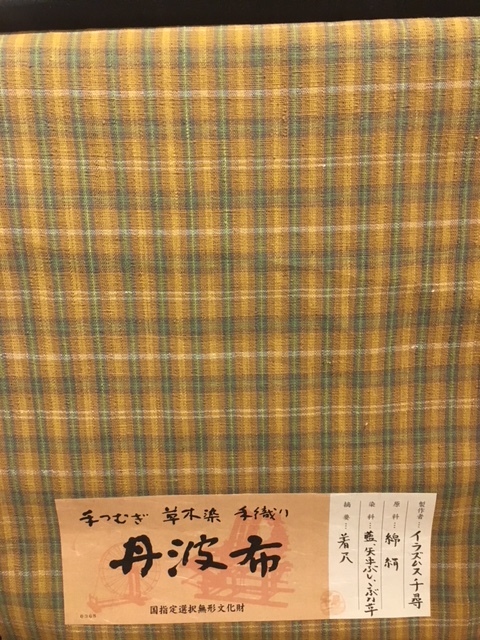 手つむぎ 草木染 手織り
丹波布
国指定選択無形文化財
製作者… イラズムス・千尋
原料… 綿 絹
染料… 藍、矢車ぶし、こぶな草
摘要… 着尺